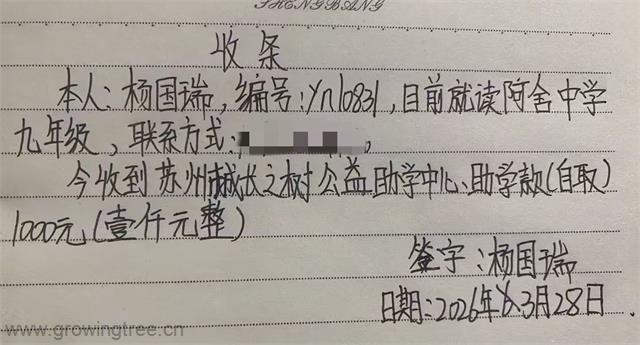 SHENGBANG
收条
本人:杨国瑞,编号:yn10831,目前就读阿舍中学
九年级,联系方式:
今收到苏州成长之树公益助学中心助学款(自取)
1000元(壹仟元整)
签字:杨国瑞
日期:2026年3月28日.
www.growingtree.cn